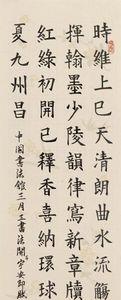 時維上巳天清朗曲水流觴
揮翰墨少陵韻律寫新章殘
紅綠初開已釋香喜納環球
夏九州昌
中国書法館三月三書法